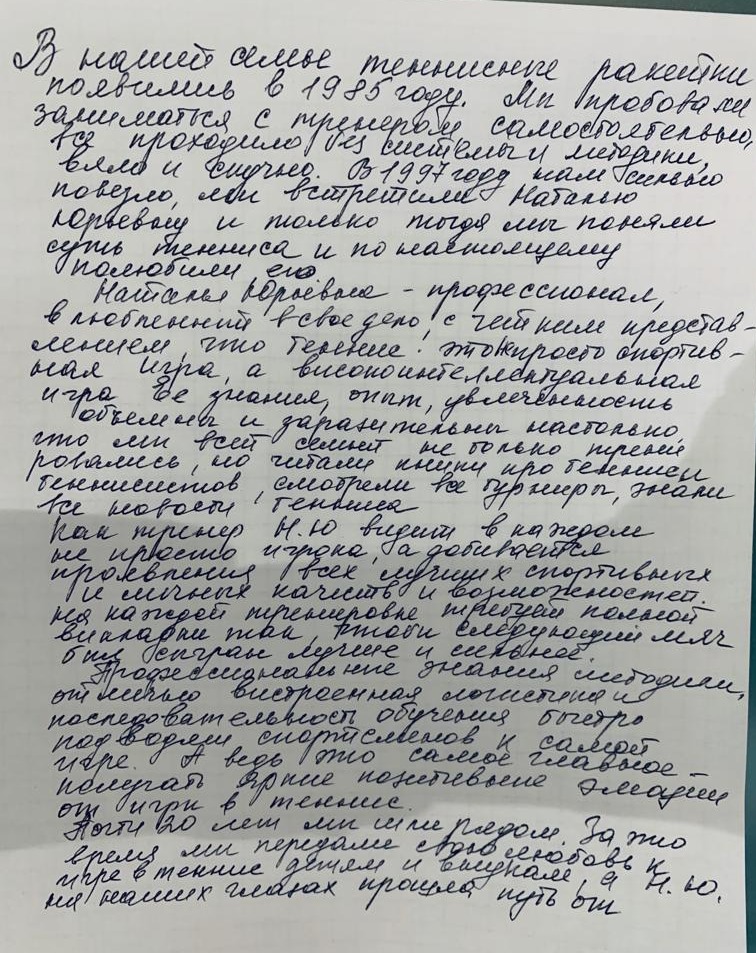 В нашей семье теннисные ракетки
появились в 1985 году. Мы пробовали
заниматься с тренером, самостоятельно,
все проходило без системы и методики,
вяло и скучно. В 1997 году нам сильно
повезло, мы встретили Наталью
Юрьевну и только тогда мы поняли
суть тенниса и по настоящему
полюбили его
Наталья Юрьевна - профессионал,
влюбленный в свое дело, с четким представ-
лением, что теннис: это не просто спортив-
ная игра, а высокоинтеллектуальная
игра. Ее знания, опыт, увлеченность
объемны и заразительны настолько,
что мы всей семьей не только трени
ровались, но читали книги про теннис и
теннисистов, смотрели все турниры, знали
все новости тенниса
Как тренер Н.Ю видит в каждом
не просто игрока, а добивается
проявления всех лучших спортивных
и личных качеств и возможностей.
На каждой тренировке требуя полной
выкладки так, чтобы следующий мяч
был сыгран лучше и сильнее.
Профессиональные знания методики,
отлично выстроенная логистика и
последовательность обучения быстро
подводят спортсменов к самой
игре. А ведь это самое главное -
получать яркие позитивные эмоции
от игры в теннис.
Почти 20 лет мы шли рядом. За это
время мы передали свою любовь к
игре в теннис детям и внукам, а Н.Ю.
на наших глазах прошла путь от